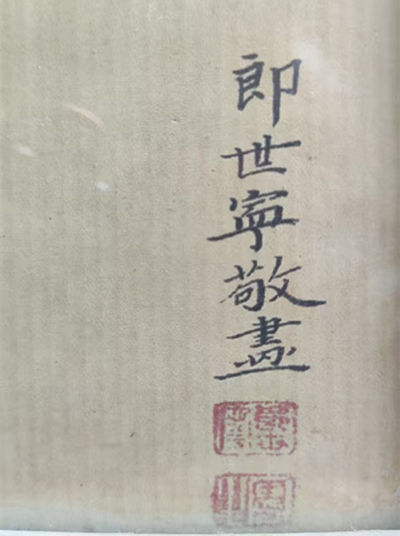 郎世寧敬畫